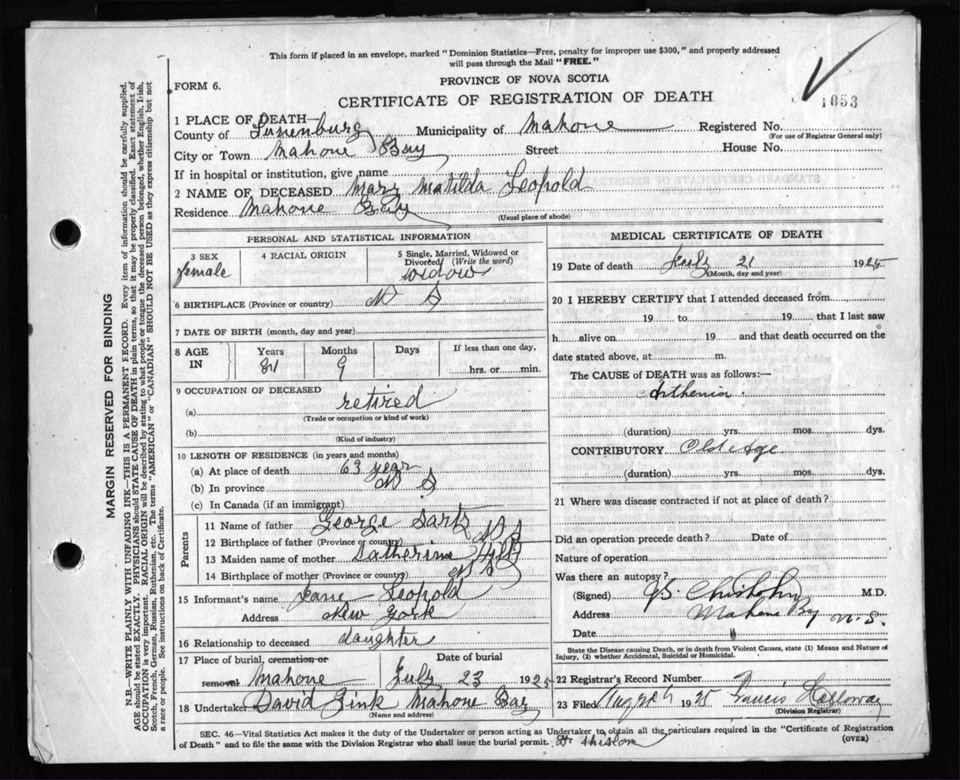 This form if placed in an envelope, marked "Dominion Statistics—Free, penalty for improper use $300," and properly addressed
will pass through the Mail "FREE."
FORM 6.
PROVINCE OF NOVA SCOTIA
CERTIFICATE OF REGISTRATION OF DEATH
1053
1 PLACE OF DEATH—
County of Lunenburg Municipality of Mahone Registered No.
(For use of Registrar General only)
City or Town Mahone Bay Street House No.
If in hospital or institution, give name
2 NAME OF DECEASED Mary Matilda Leopold
Residence Mahone Bay
(Usual place of abode)
PERSONAL AND STATISTICAL INFORMATION
3 SEX
female
4 RACIAL ORIGIN
5 Single, Married, Widowed or
Divorced (Write the word)
widow
6 BIRTHPLACE (Province or country) N S
7 DATE OF BIRTH (month, day and year)
8 AGE
IN
Years
81
Months
9
Days
If less than one day,
hrs. or min.
9 OCCUPATION OF DECEASED
(a) retired
(Trade or occupation or kind of work)
(b)
(Kind of industry)
10 LENGTH OF RESIDENCE (in years and months)
(a) At place of death 63 year
(b) In province N S
(c) In Canada (if an immigrant)
Parents
11 Name of father George
12 Birthplace of father (Province or country) N S
13 Maiden name of mother Catherine
14 Birthplace of mother (Province or country) N S
15 Informant's name Leopold
Address New York
16 Relationship to deceased daughter
17 Place of burial, cremation or
removal Mahone
Date of burial
July 23 1925
18 Undertaker David Zink Mahone Bay
(Name and address)
MEDICAL CERTIFICATE OF DEATH
19 Date of death July 21 1925
(Month, day and year)
20 I HEREBY CERTIFY that I attended deceased from
19 to 19 that I last saw
h alive on 19 and that death occurred on the
date stated above, at m.
The CAUSE of DEATH was as follows:—
(duration) yrs. mos. dys.
CONTRIBUTORY Old Age
(duration) yrs. mos. dys.
21 Where was disease contracted if not at place of death?
Did an operation precede death? Date of
Nature of operation
Was there an autopsy?
(Signed) M.D.
Address Mahone Bay N.S.
Date
State the Disease causing Death, or in death from Violent Causes, state (1) Means and Nature of
Injury, (2) whether Accidental, Suicidal or Homicidal.
22 Registrar's Record Number
23 Filed 1925 Francis Holloway
(Division Registrar)
SEC. 46—Vital Statistics Act makes it the duty of the Undertaker or person acting as Undertaker to obtain all the particulars required in the "Certificate of Registration
of Death" and to file the same with the Division Registrar who shall issue the burial permit.
(OVER)
MARGIN RESERVED FOR BINDING
N.B.—WRITE PLAINLY WITH UNFADING INK—THIS IS A PERMANENT RECORD. Every item of information should be carefully supplied.
AGE should be stated EXACTLY. PHYSICIANS should STATE CAUSE OF DEATH in plain terms, so that it may be properly classified. Exact statement of
OCCUPATION is very important. RACIAL ORIGIN will be described by stating to what people or tongue the deceased person belonged, whether English, Irish,
Scotch, French, German, Russian, Ruthenian, etc. The terms "AMERICAN" or "CANADIAN" SHOULD NOT BE USED as they express citizenship but not
a race or people. See instructions on back of Certificate.